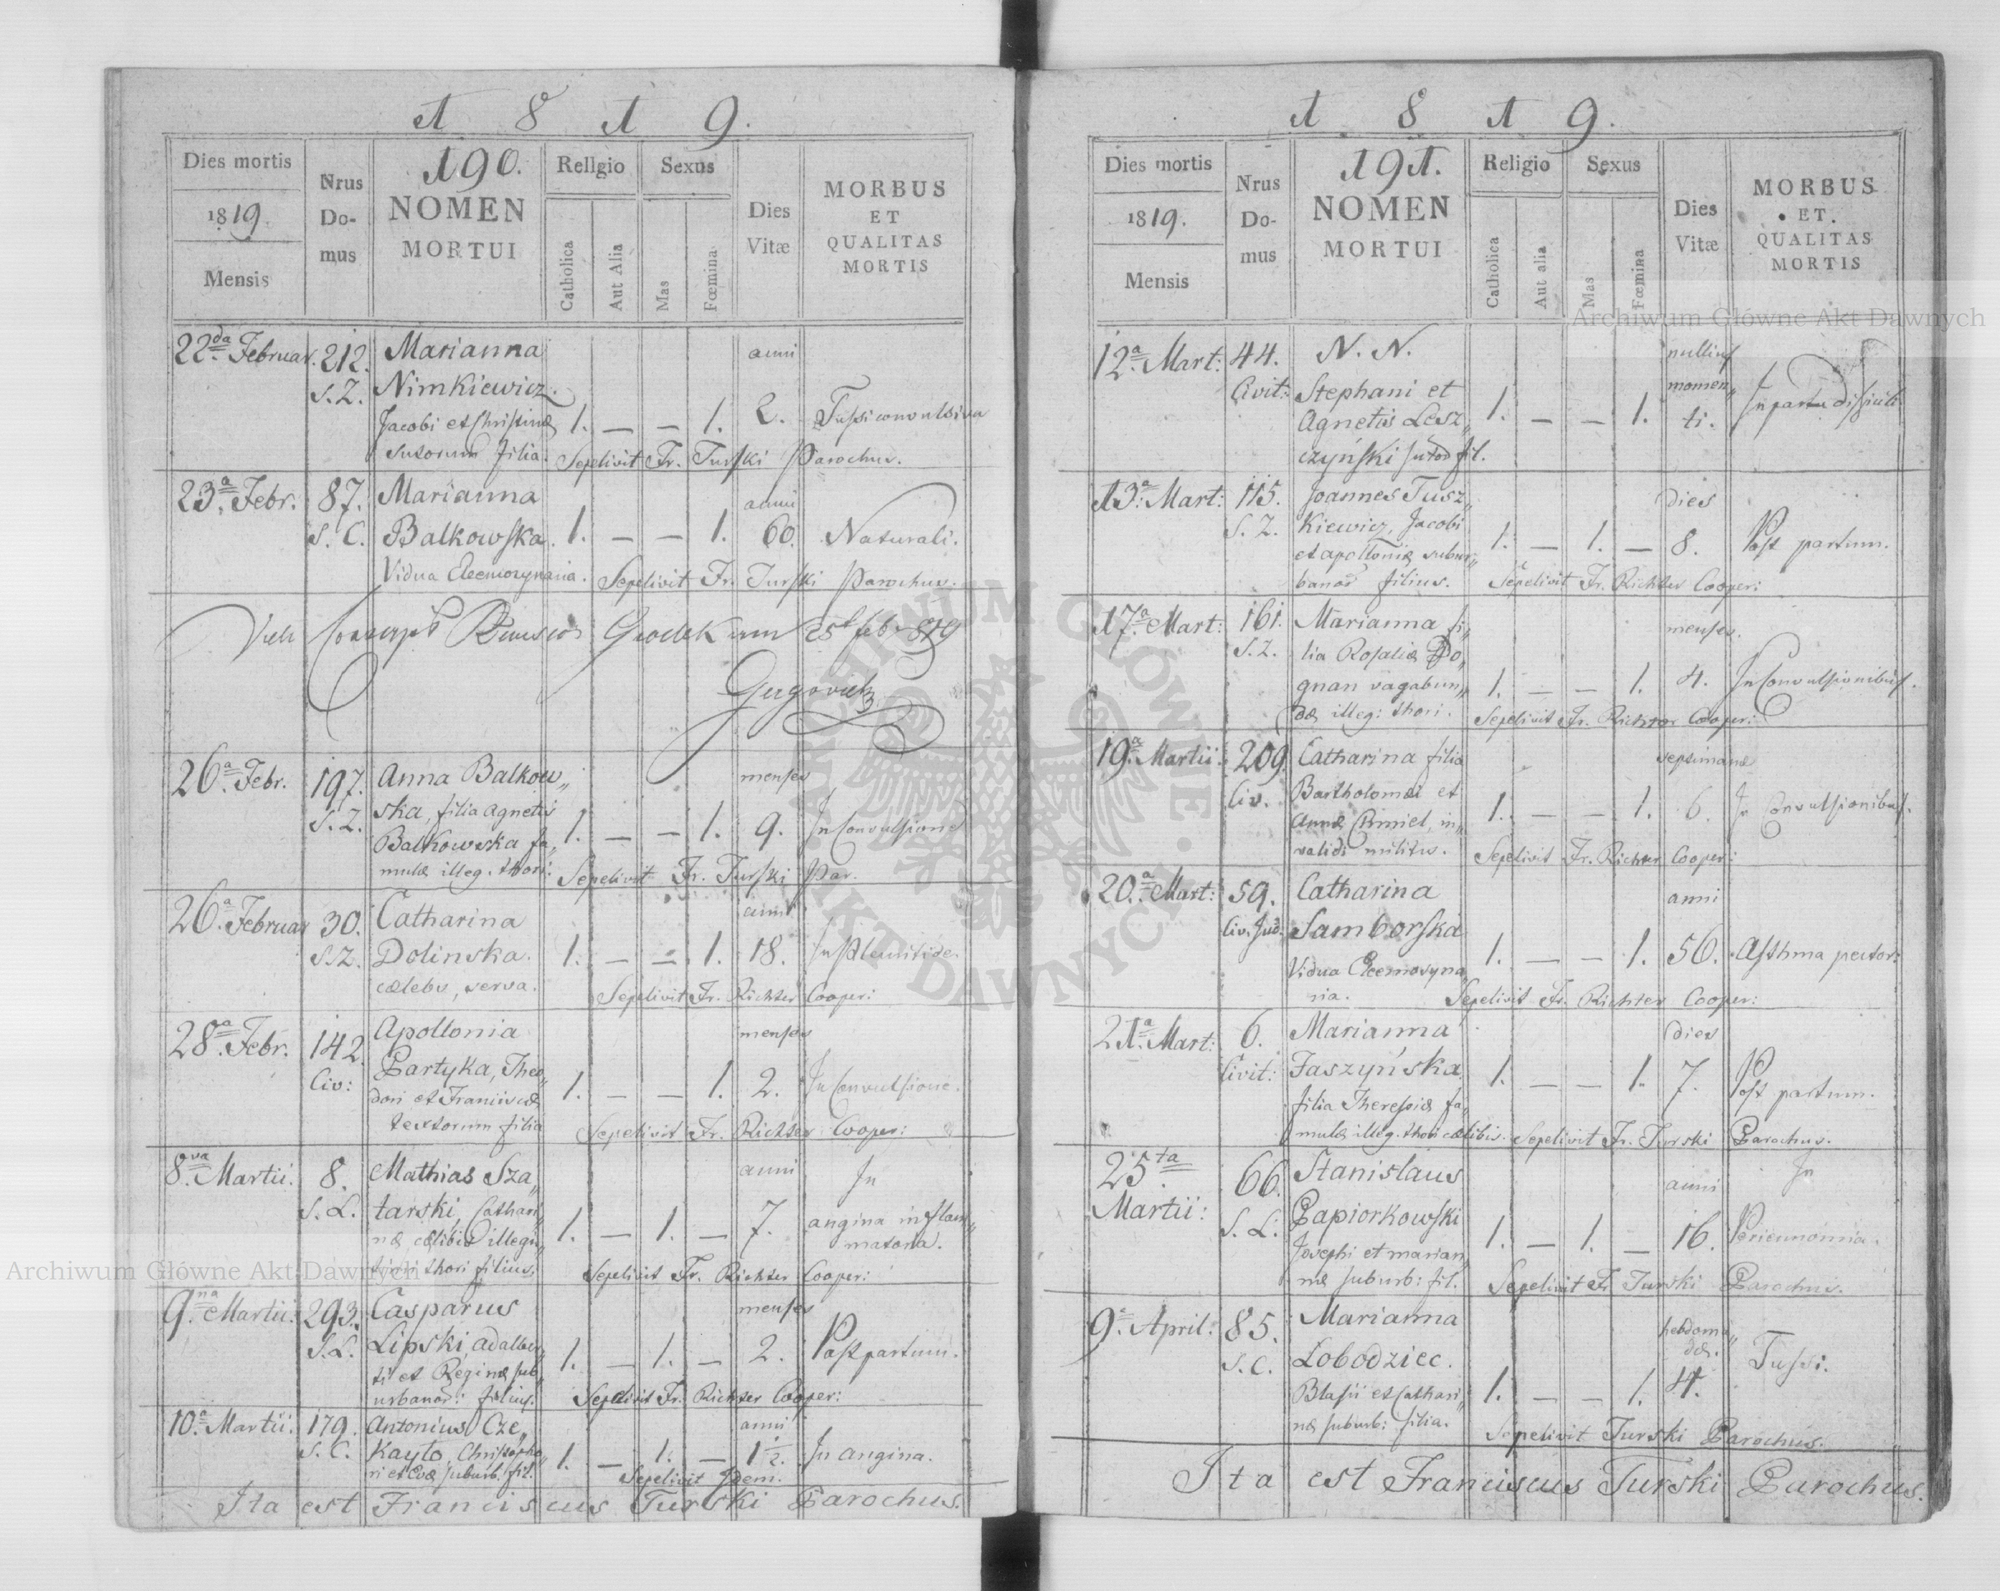 1 8 1 9.
190.
Dies mortis
1819.
Mensis
Nrus
Do-
mus
NOMEN
MORTUI
Religio
Catholica
Aut Alia
Sexus
Mas
Fœmina
Dies
Vitæ
MORBUS
ET
QUALITAS
MORTIS
22da Februar. 212. Marianna anni
S. Z. Nimkiewicz.
Jacobi et Christinæ 1. — — 1. 2. Tussi convulsiva
sutorum filia. Sepelivit Fr. Turski Parochus.
23a Febr. 87. Marianna anni
S. C. Balkowska. 1. — — 1. 60. Naturali.
Vidua Eleemosynaria. Sepelivit Fr. Turski Parochus.
Grodek am 25t feb 819
26a Febr. 197. Anna Balkow„ menses
S. Z. ska, filia Agnetis 1. — — 1. 9. In Convulsione
Balkowska fa„
mulæ illeg. thori. Sepelivit Fr. Turski Par.
26a Februar 30. Catharina anni
S.Z. Dolinska. 1. — — 1. 18.
cælebs, serva. Sepelivit Fr. Richter Cooper:
28a Febr. 142. Apollonia menses
Civ: Partyka, Theo„ 1. — — 1. 2. In Convulsione.
dori et Franciscæ
textorum filia Sepelivit Fr. Richter Cooper:
8va Martii. 8. Mathias Sza„ anni In
S. L. tarski, Cathari„ 1. — 1. — 7. angina inflam„
næ cælibis illegi„ matoria.
timi thori filius. Sepelivit Fr. Richter Cooper:
9na Martii. 293. Casparus menses
S.L. Lipski, Adalber„ 1. — 1. — 2. Post partum.
ti et Reginæ sub„
urbanor: filius. Sepelivit Fr. Richter Cooper:
10a Martii. 179. Antonius Cze„ anni
S. C. Kayło, Christopho„ 1. — 1. — 1½. In angina.
ri et Evæ suburb. fil. Sepelivit Idem.
Ita est Franciscus Turski Parochus.
1 8 1 9.
191.
Dies mortis
1819.
Mensis
Nrus
Do-
mus
NOMEN
MORTUI
Religio
Catholica
Aut alia
Sexus
Mas
Fœmina
Dies
Vitæ
MORBUS
ET.
QUALITAS
MORTIS
12a Mart: 44. N. N. nullius
Civit: Stephani et momen„
Agnetis Lesz„ 1. — — 1. ti. In partu difficili
czyński sutor fil.
13a Mart: 115. Joannes Tusz„ dies
S. Z. kiewicz, Jacobi 1. — 1. — 8. Post partum.
et Apolloniæ subur„
banor filius. Sepelivit Fr. Richter Cooper:
17a Mart: 161. Marianna fi„ menses.
S.Z. lia Rosaliæ Po„
gnan vagabun„ 1. — — 1. 4. In Convulsionibus.
dæ illeg: thori. Sepelivit Fr. Richter Cooper:
19a Martii. 209. Catharina filia septimanæ
Civ. Bartholomæi et 1. — — 1. 6. In Convulsionibus.
Annæ Chmiel, in„
validi militis. Sepelivit Fr. Richter Cooper:
20a Mart: 59. Catharina anni
Civ. Jud. Samborska 1. — — 1. 56. Asthma pector:
Vidua Eleemosyna
ria. Sepelivit Fr. Richter Cooper:
21a Mart: 6. Marianna dies
Civit: Jaszyńska 1. — — 1. 7. Post partum.
filia Theresiæ fa„
mulæ illeg. thori cælibis. Sepelivit Fr. Turski Parochus.
25ta 66. Stanislaus anni In
Martii: S. L. Papiorkowski 1. — 1. — 16.
Josephi et Marian„
næ suburb: fil. Sepelivit Fr Turski Parochus.
9a April: 85. Marianna hebdom„
S. C. Łobodziec. dæ. Tussi.
Blasii et Cathari„ 1. — — 1. 4.
næ suburb: filia. Sepelivit Turski Parochus.
Ita est Franciscus Turski Parochus.
Archiwum Główne Akt Dawnych
Archiwum Główne Akt Dawnych
ARCHIWUM GŁÓWNE AKT DAWNYCH